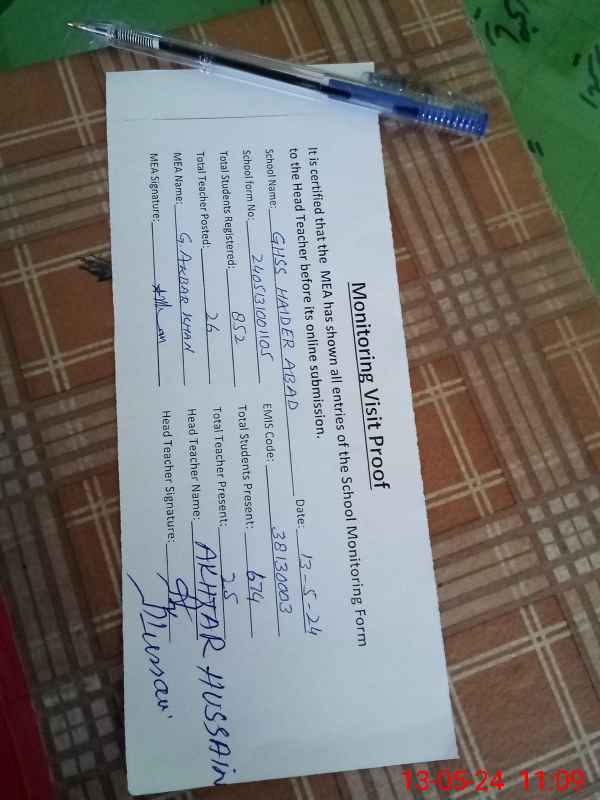 Monitoring Visit Proof
It is certified that the MEA has shown all entries of the School Monitoring Form
to the Head Teacher before its online submission.
School Name: GHSS HAIDER ABAD Date: 13-5-24
School form No: 2405131001105 EMIS Code: 38130003
Total Students Registered: 852 Total Students Present: 674
Total Teacher Posted: 26 Total Teacher Present: 25
MEA Name: G. AKBAR KHAN Head Teacher Name: AKHTAR HUSSAIN
MEA Signature: Head Teacher Signature:
13-05-24 11:09